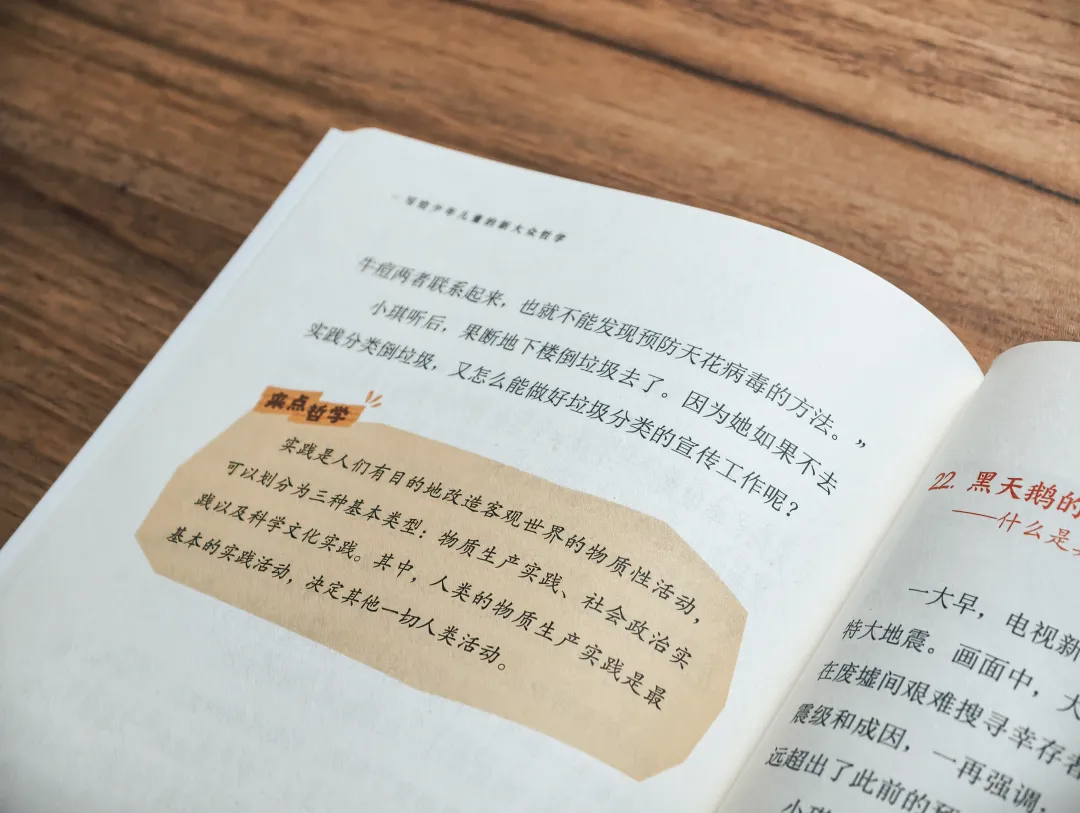 写给少年儿童的新大众哲学
牛痘两者联系起来，也就不能发现预防天花病毒的方法。”
小琪听后，果断地下楼倒垃圾去了。因为她如果不去
实践分类倒垃圾，又怎么能做好垃圾分类的宣传工作呢？
来点哲学
实践是人们有目的地改造客观世界的物质性活动，
可以划分为三种基本类型：物质生产实践、社会政治实
践以及科学文化实践。其中，人类的物质生产实践是最
基本的实践活动，决定其他一切人类活动。
22. 黑天鹅的
——什么是
一大早，电视新
特大地震。画面中，大
在废墟间艰难搜寻幸存者
震级和成因，一再强调，
远超出了此前的预
小琪